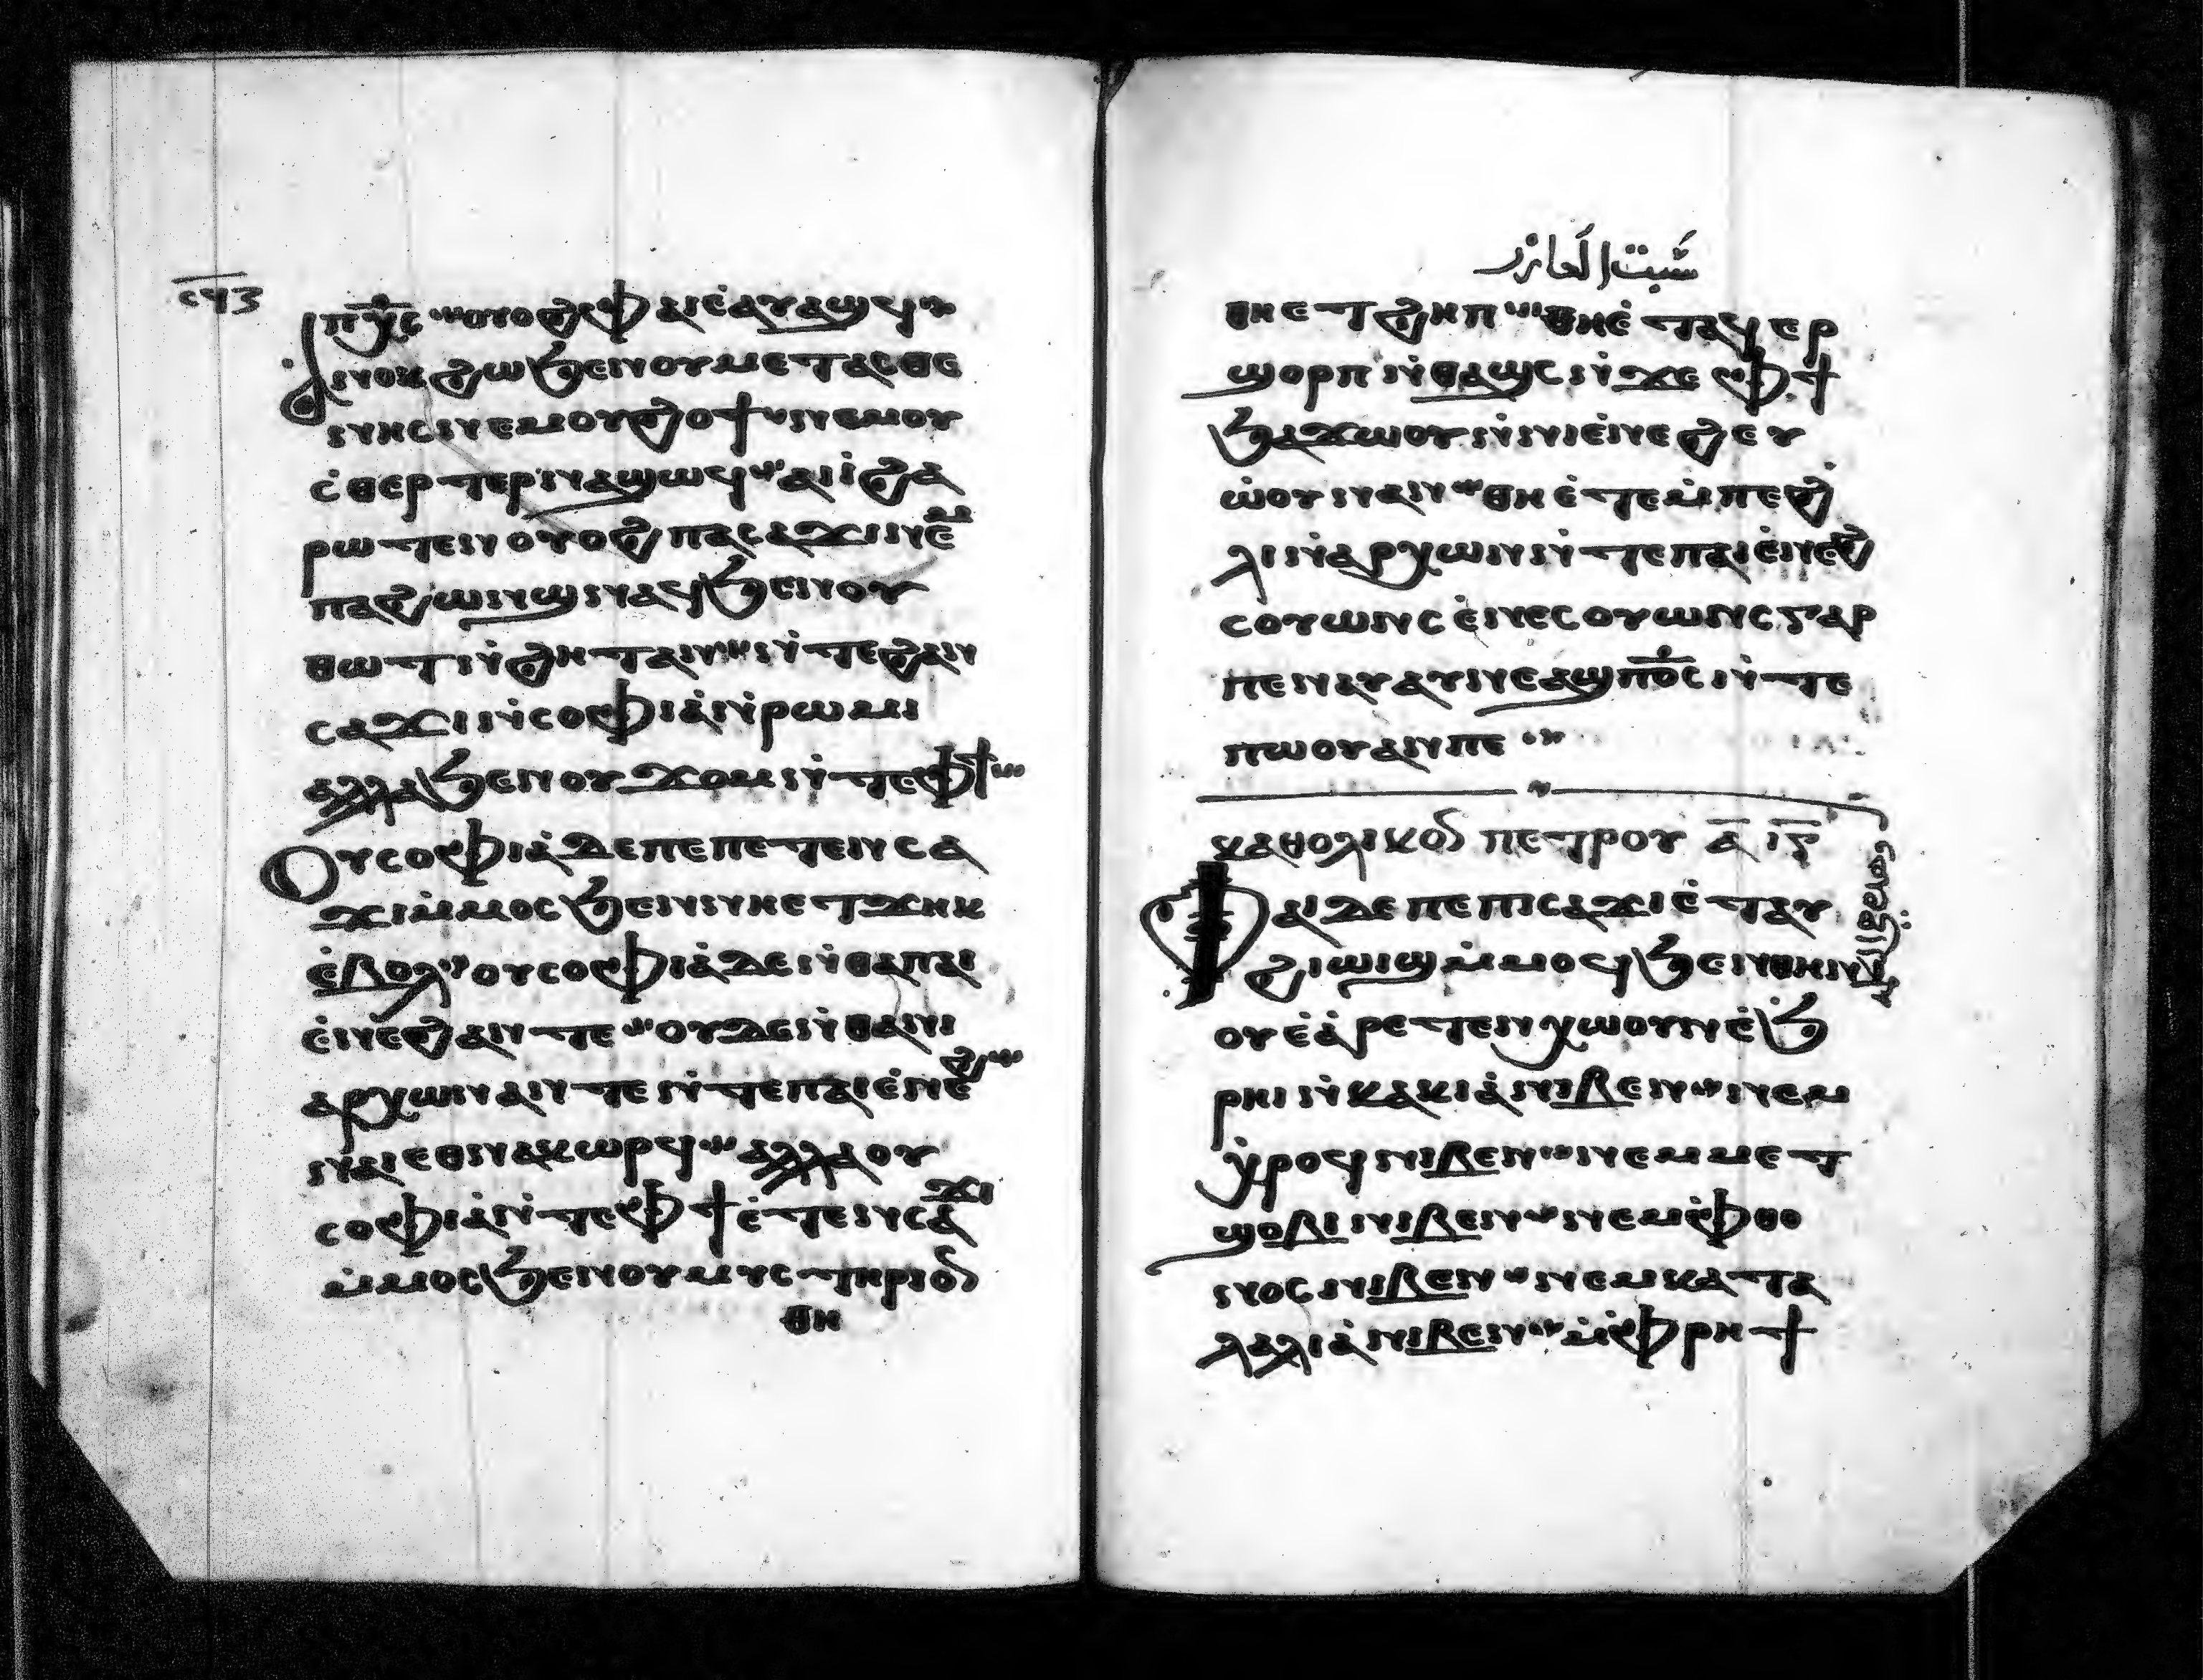 ⲥϥⲋ
ⲡⲭ̅ⲥ̅ ⲟⲩⲟϩ ⲫⲁⲓ ⲉ̀ⲁⲩⲁϣϥ
ⲁⲛⲟⲕ ϩⲱ ϧⲉⲛ ⲟⲩⲙⲉⲧⲁⲥⲑⲉ
ⲛⲏⲥ ⲛⲉⲙ ⲟⲩϩⲟϯ ⲛⲉⲙ ⲟⲩ
ⲥ̀ⲑⲉⲣⲧⲉⲣ ⲛⲁϣⲱϥ ⲁⲓⲓ̀ ϩⲁ
ⲣⲱⲧⲉⲛ ⲟⲩⲟϩ ⲡⲁⲥⲁϫⲓ ⲛⲉⲙ
ⲡⲁϩⲓⲱⲓϣ ⲛⲁϥϧⲉⲛ ⲟⲩ
ⲑⲱⲧ ⲛ̀ϩⲏⲧ ⲁⲛ ⲛ̀ⲧⲉ ϩⲁⲛ
ⲥⲁϫⲓ ⲛ̀ⲥⲟⲫⲓⲁ̀ ⲛ̀ⲣⲱⲙⲓ
ⲁⲗⲗⲁ ϧⲉⲛ ⲟⲩϫⲟⲙ ⲛ̀ⲧⲉ ⲫϯ
Ⲟⲩⲥⲟⲫⲓⲁ̀ ⲇⲉ ⲡⲉ ⲡⲉⲧⲉⲛⲥⲁ
ϫⲓ ⲙ̀ⲙⲟⲥ ϧⲉⲛ ⲛⲏⲉⲧϫⲏⲕ
ⲉ̀ⲃⲟⲗ ⲟⲩⲥⲟⲫⲓⲁ̀ ⲇⲉ ⲛ̀ⲑⲁ ⲡⲁⲓ
ⲉ̀ⲛⲉϩ ⲁⲛ ⲧⲉ ⲟⲩⲇⲉ ⲛ̀ⲑⲁ ⲛⲓ
ⲁⲣⲭⲱⲛ ⲁⲛ ⲧⲉ ⲛ̀ⲧⲉ ⲡⲁⲓⲉ̀ⲛⲉϩ
ⲛⲁⲓ ⲉⲑⲛⲁⲕⲱⲣϥ ⲁⲗⲗⲁ ⲟⲩ
ⲥⲟⲫⲓⲁ̀ ⲛ̀ⲧⲉ ⲫϯ ⲉ̀ⲧⲉⲛⲥⲁϫⲓ
ⲙ̀ⲙⲟⲥ ϧⲉⲛ ⲟⲩⲙⲩⲥⲧⲏⲣⲓⲟⲛ
ⲑⲏ
سبت العازر
ⲑⲏⲉⲧϩⲏⲡ ⲑⲏⲉ̀ⲧⲁϥⲉⲣ
ϣⲟⲣⲡ ⲛ̀ⲑⲁϣⲥ ⲛ̀ϫⲉ ⲫϯ
ϧⲁϫⲱⲟⲩ ⲛ̀ⲛⲓⲉ̀ⲛⲉϩ ⲉⲩ
ⲱ̀ⲟⲩ ⲛⲁⲛ ⲑⲏ ⲉ̀ⲧⲉ ⲙ̀ⲡⲉ ϩ
ⲗⲓ ⲛ̀ⲁⲣⲭⲱⲛ ⲛ̀ⲧⲉ ⲡⲁⲓⲉ̀ⲛⲉϩ
ⲥⲟⲩⲱⲛⲥ ⲉ̀ⲛⲉⲥⲟⲩⲱⲛⲥ ⲅⲁⲣ
ⲡⲉ ⲛⲁⲩⲁⲩⲛⲉⲁϣ ⲡⲟ̅ⲥ̅ ⲛ̀ⲧⲉ
ⲡⲱⲟⲩ ⲁⲛ ⲡⲉ
ⲕⲁⲑⲟⲗⲓⲕⲟⲛ ⲡⲉⲧⲣⲟⲩ ⲁ̅ ⲓ̅ⲍ̅
Ⲫⲁⲓ ⲇⲉ ⲡⲉ ⲡⲓⲥⲁϫⲓ ⲉ̀ⲧⲁⲩ
ϩⲓⲱⲓϣ ⲙ̀ⲙⲟϥ ϧⲉⲛ ⲑⲏⲛ
ⲟⲩ ⲉ̀ⲁ̀ⲣⲉⲧⲉⲛⲭⲱ ⲟⲩⲛ ⲉ̀ϧ
ⲣⲏⲓ ⲛ̀ⲕⲁⲕⲓⲁ̀ ⲛⲓⲃⲉⲛ ⲛⲉⲙ
ⲭ̀ⲣⲟϥ ⲛⲓⲃⲉⲛ ⲛⲉⲙ ⲙⲉⲧ
ϣⲟⲃⲓ ⲛⲓⲃⲉⲛ ⲛⲉⲙ ⲫ̀ⲑⲟ
ⲛⲟⲥ ⲛⲓⲃⲉⲛ ⲛⲉⲙ ⲕⲁⲧⲁ
ⲗⲁⲗⲓⲁ̀ ⲛⲓⲃⲉⲛ ⲙ̀ⲫⲣⲏϯ